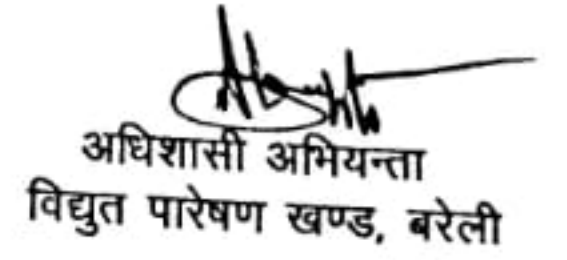 अधिशासी अभियन्ता
विद्युत पारेषण खण्ड, बरेली